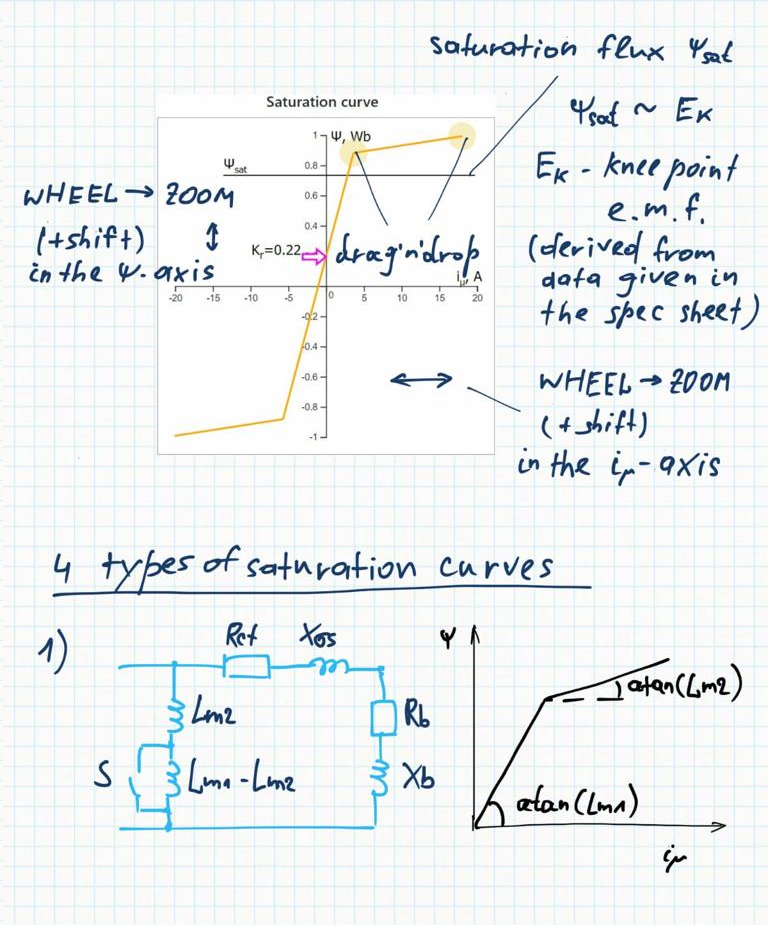 saturation flux Ψsat
Ψsat ~ EK
EK - knee point
e.m.f.
(derived from
data given in
the spec sheet)
Saturation curve
Ψ, Wb
1
0.8
0.6
0.4
-0.2
-0.4
-0.6
-0.8
-1
Ψsat
Kr=0.22
iμ, A
-20 -15 -10 -5 0 5 10 15 20
WHEEL → ZOOM
(+shift) ↕
in the Ψ-axis
drag'n'drop
WHEEL → ZOOM
(+shift)
in the iμ-axis
4 types of saturation curves
1)
Rct Xσs
Lm2
S Lm1-Lm2
Rb
Xb
Ψ
atan(Lm2)
atan(Lm1)
iμ